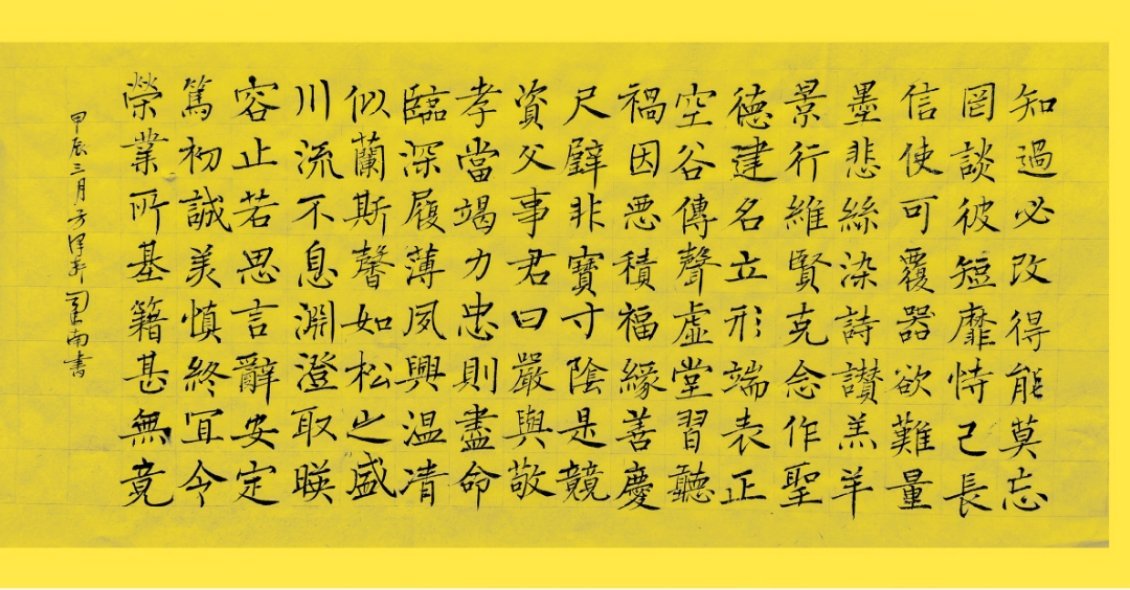 知過必改得能莫忘
罔談彼短靡恃己長
信使可覆器欲難量
墨悲絲染詩讃羔羊
景行維賢克念作聖
德建名立形端表正
空谷傳聲虛堂習聽
禍因悪積福緣善慶
尺璧非寶寸陰是競
資父事君曰嚴與敬
孝當竭力忠則盡命
臨深履薄夙興温凊
似蘭斯馨如松之盛
川流不息淵澄取暎
容止若思言辭安定
篤初誠美慎終冝令
榮業所基籍甚無竟
甲辰三月南書